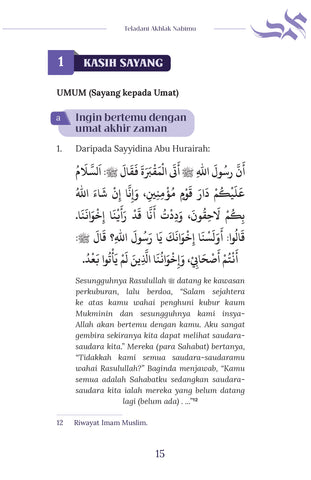 Teladani Akhlak Nabimu
1 KASIH SAYANG
UMUM (Sayang kepada Umat)
a Ingin bertemu dengan
umat akhir zaman
1. Daripada Sayyidina Abu Hurairah:
أَنَّ رَسُولَ اللهِ ﷺ أَتَى الْمَقْبَرَةَ فَقَالَ ﷺ: اَلسَّلَامُ
عَلَيْكُمْ دَارَ قَوْمٍ مُؤْمِنِينَ، وَإِنَّا إِنْ شَاءَ اللهُ
بِكُمْ لَاحِقُونَ، وَدِدْتُ أَنَّا قَدْ رَأَيْنَا إِخْوَانَنَا.
قَالُوا: أَوَلَسْنَا إِخْوَانَكَ يَا رَسُولَ اللهِ؟ قَالَ ﷺ:
أَنْتُمْ أَصْحَابِيْ، وَإِخْوَانُنَا الَّذِينَ لَمْ يَأْتُوا بَعْدُ.
Sesungguhnya Rasulullah ﷺ datang ke kawasan
perkuburan, lalu berdoa, “Salam sejahtera
ke atas kamu wahai penghuni kubur kaum
Mukminin dan sesungguhnya kami insya-
Allah akan bertemu dengan kamu. Aku sangat
gembira sekiranya kita dapat melihat saudara-
saudara kita.” Mereka (para Sahabat) bertanya,
“Tidakkah kami semua saudara-saudaramu
wahai Rasulullah?” Baginda menjawab, “Kamu
semua adalah Sahabatku sedangkan saudara-
saudara kita ialah mereka yang belum datang
lagi (belum ada) . ...”¹²
12 Riwayat Imam Muslim.
15